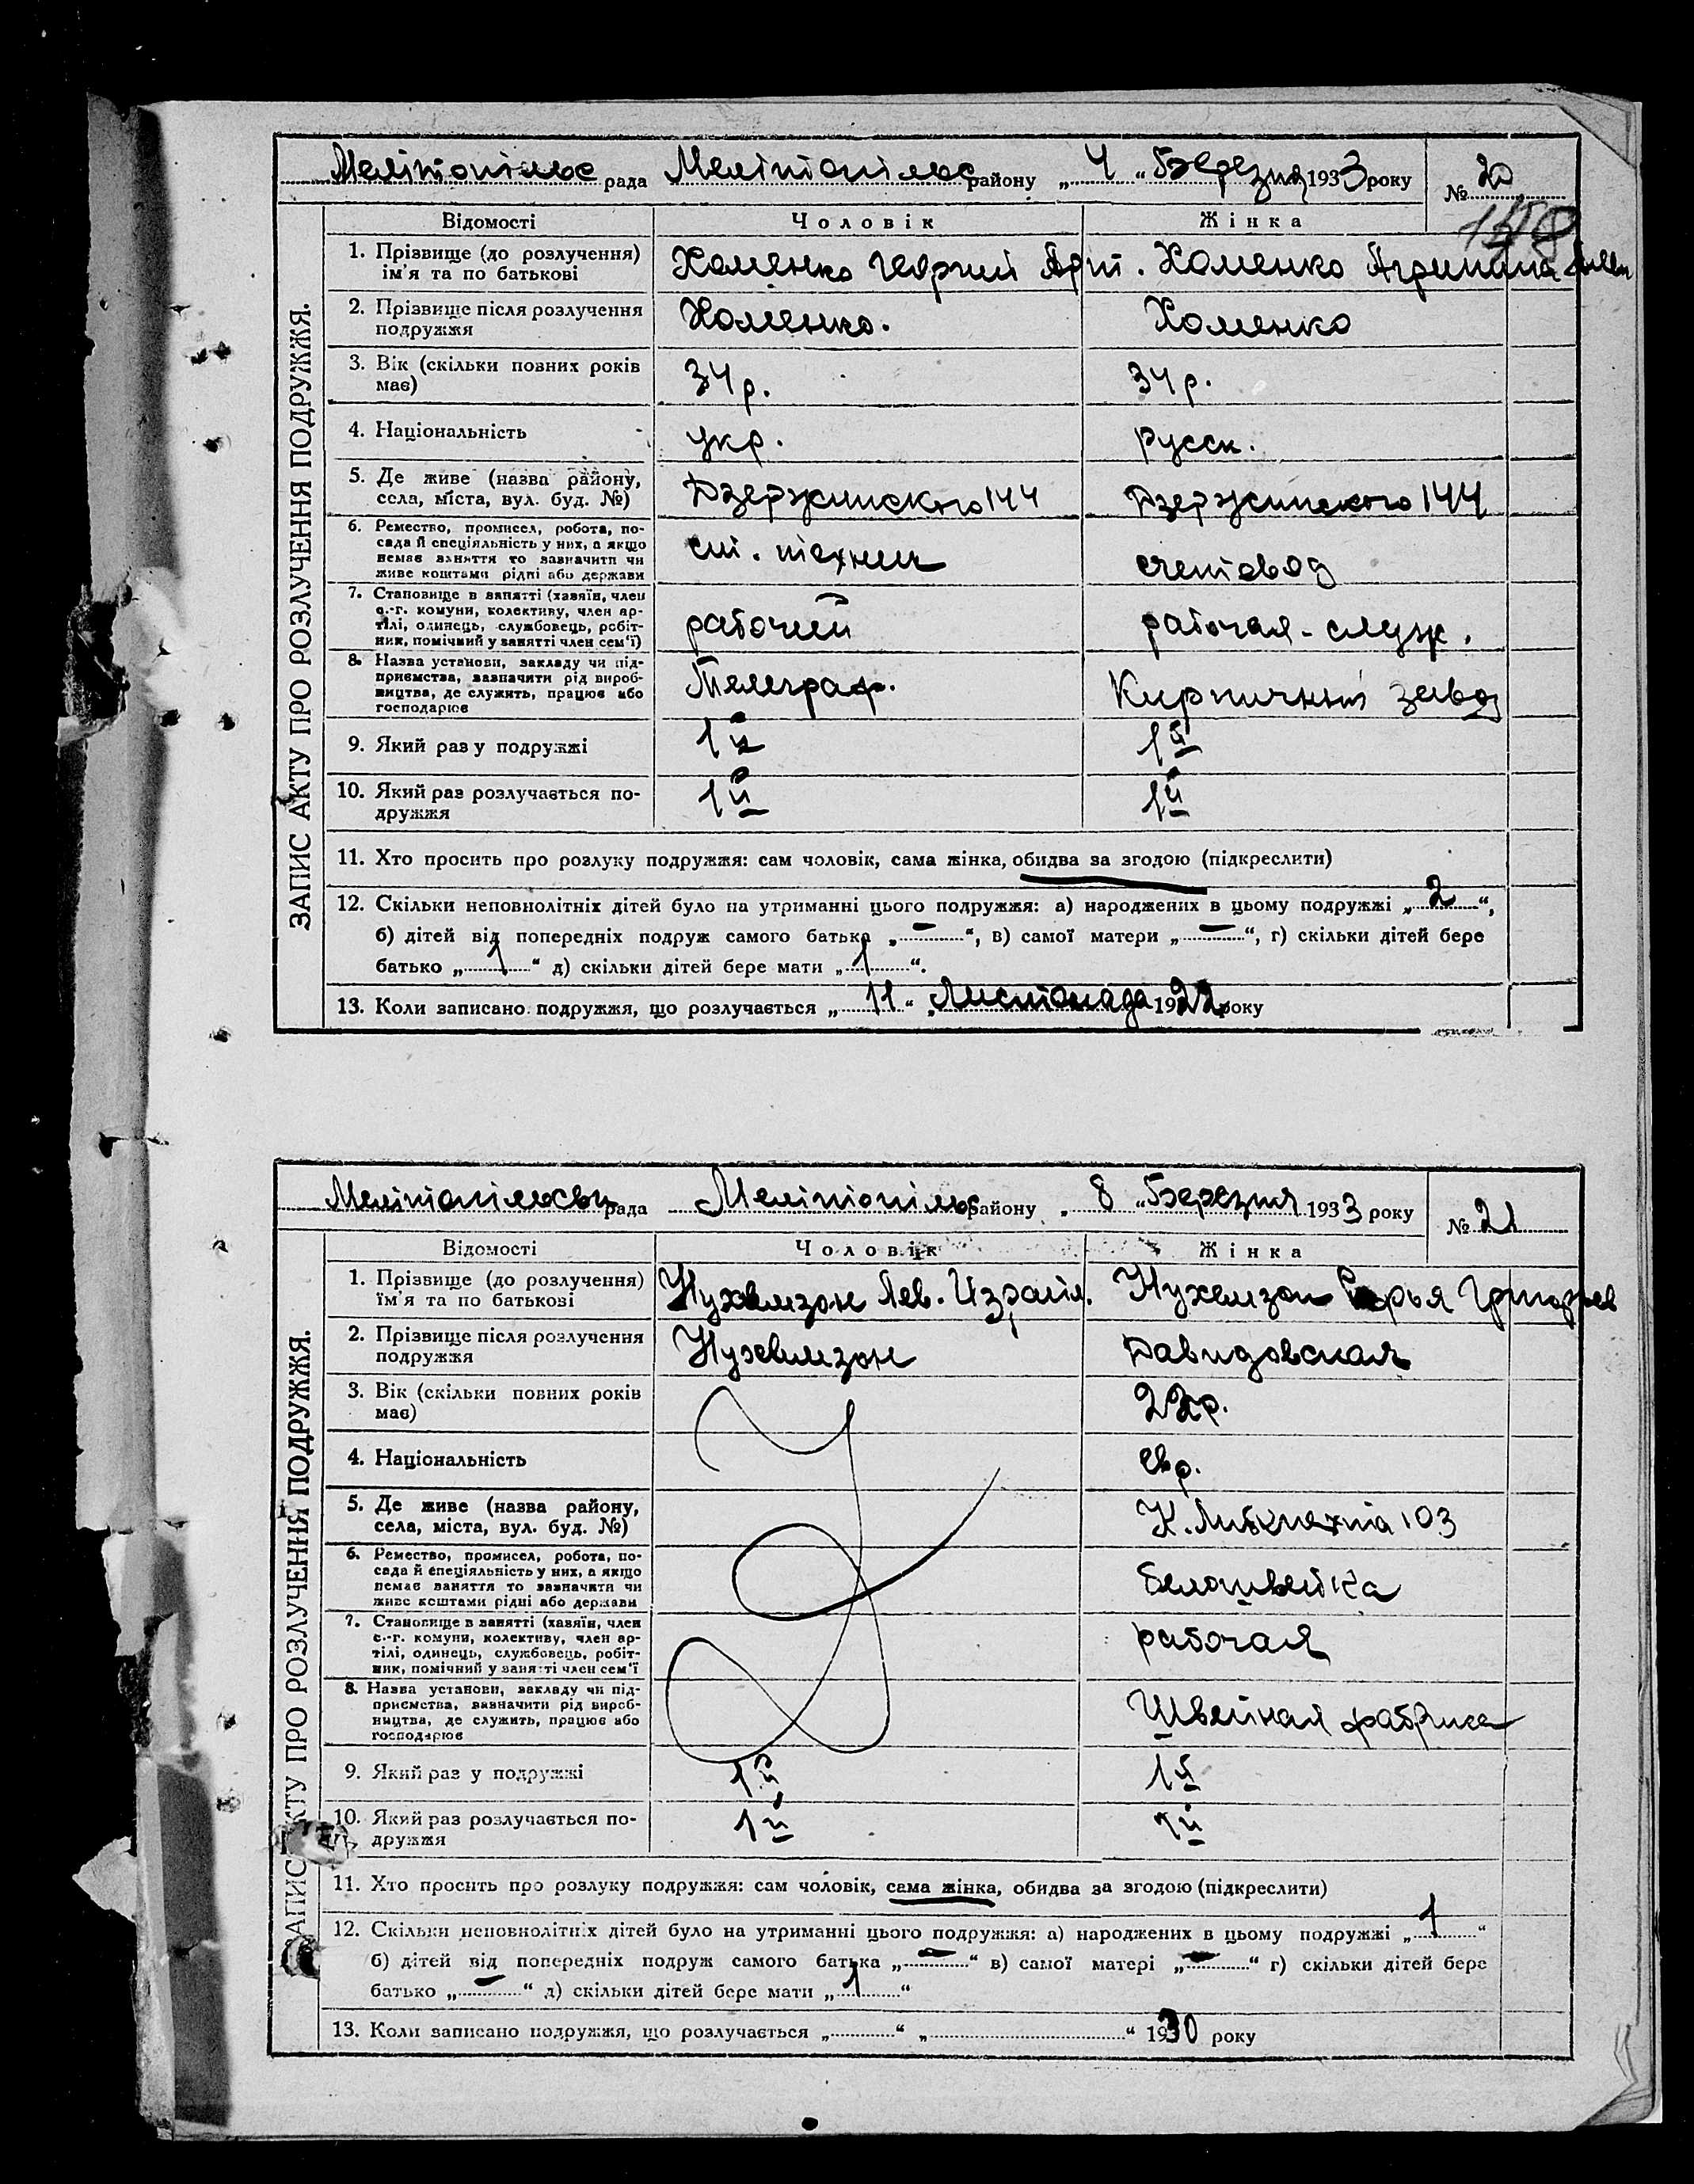 Мелітопільс рада Мелітопільс району „ 4 “ Березня 1933 року № 20
Відомості Чоловік Жінка
ЗАПИС АКТУ ПРО РОЗЛУЧЕННЯ ПОДРУЖЖЯ.
1. Прізвище (до розлучення) ім'я та по батькові Хоменко Георгий Хоменко Агрипина
2. Прізвище після розлучення подружжя Хоменко. Хоменко
3. Вік (скільки повних років має) 34 р. 34 р.
4. Національність укр. русск.
5. Де живе (назва району, села, міста, вул. буд. №) Дзержинского 144 Дзержинского 144
6. Ремество, промисел, робота, посада й спеціяльність у них, а якщо немає заняття то зазначити чи живе коштами рідні або держави ст. техник счетовод
7. Становище в занятті (хазяїн, член с.-г. комуни, колективу, член артілі, одинець, службовець, робітник, помічний у занятті член сем'ї) рабочий рабочая-служ.
8. Назва установи, закладу чи підприємства, зазначити рід виробництва, де служить, працює або господарює Телеграф. Кирпичный завод
9. Який раз у подружжі 1й 1й
10. Який раз розлучається подружжя 1й 1й
11. Хто просить про розлуку подружжя: сам чоловік, сама жінка, обидва за згодою (підкреслити)
12. Скільки неповнолітніх дітей було на утриманні цього подружжя: а) народжених в цьому подружжі „ 2 “,
б) дітей від попередніх подруж самого батька „ – “, в) самої матери „ – “, г) скільки дітей бере
батько „ 1 “ д) скільки дітей бере мати „ 1 “.
13. Коли записано подружжя, що розлучається „ 11 “ „ Листопада 1922 року
Мелітопільськ рада Мелітопільс району „ 8 „ Березня 1933 року № 21
Відомості Чоловік Жінка
ЗАПИС АКТУ ПРО РОЗЛУЧЕННЯ ПОДРУЖЖЯ.
1. Прізвище (до розлучення) ім'я та по батькові Нухемзон Лев. Израил. Нухемзон Григорьев
2. Прізвище після розлучення подружжя Нухемзон Давидовская
3. Вік (скільки повних років має) 22 р.
4. Національність евр.
5. Де живе (назва району, села, міста, вул. буд. №) К. Либкнехта 103
6. Ремество, промисел, робота, посада й спеціяльність у них, а якщо немає заняття то зазначити чи живе коштами рідні або держави белошвейка
7. Становище в занятті (хазяїн, член с.-г. комуни, колективу, член артілі, одинець, службовець, робітник, помічний у занятті член сем'ї рабочая
8. Назва установи, закладу чи підприємства, зазначити рід виробництва, де служить, працює або господарює Швейная фабрика
9. Який раз у подружжі 1й 1й
10. Який раз розлучається подружжя 1й 1й
11. Хто просить про розлуку подружжя: сам чоловік, сама жінка, обидва за згодою (підкреслити)
12. Скільки неповнолітніх дітей було на утриманні цього подружжя: а) народжених в цьому подружжі „ 1 “
б) дітей від попередніх подруж самого батька „ – “ в) самої матері „ – “ г) скільки дітей бере
батько „ – “ д) скільки дітей бере мати „ 1 “
13. Коли записано подружжя, що розлучається „ “ „ “ 1930 року